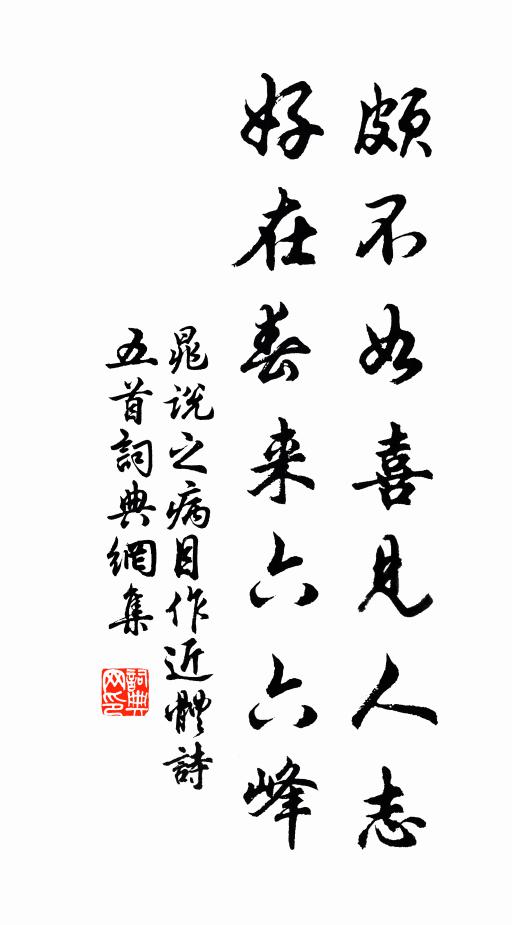 頗不如喜見人志
好在春来六六峰
晁説之病目作近體詩
五首詞典網集
詞典
网印